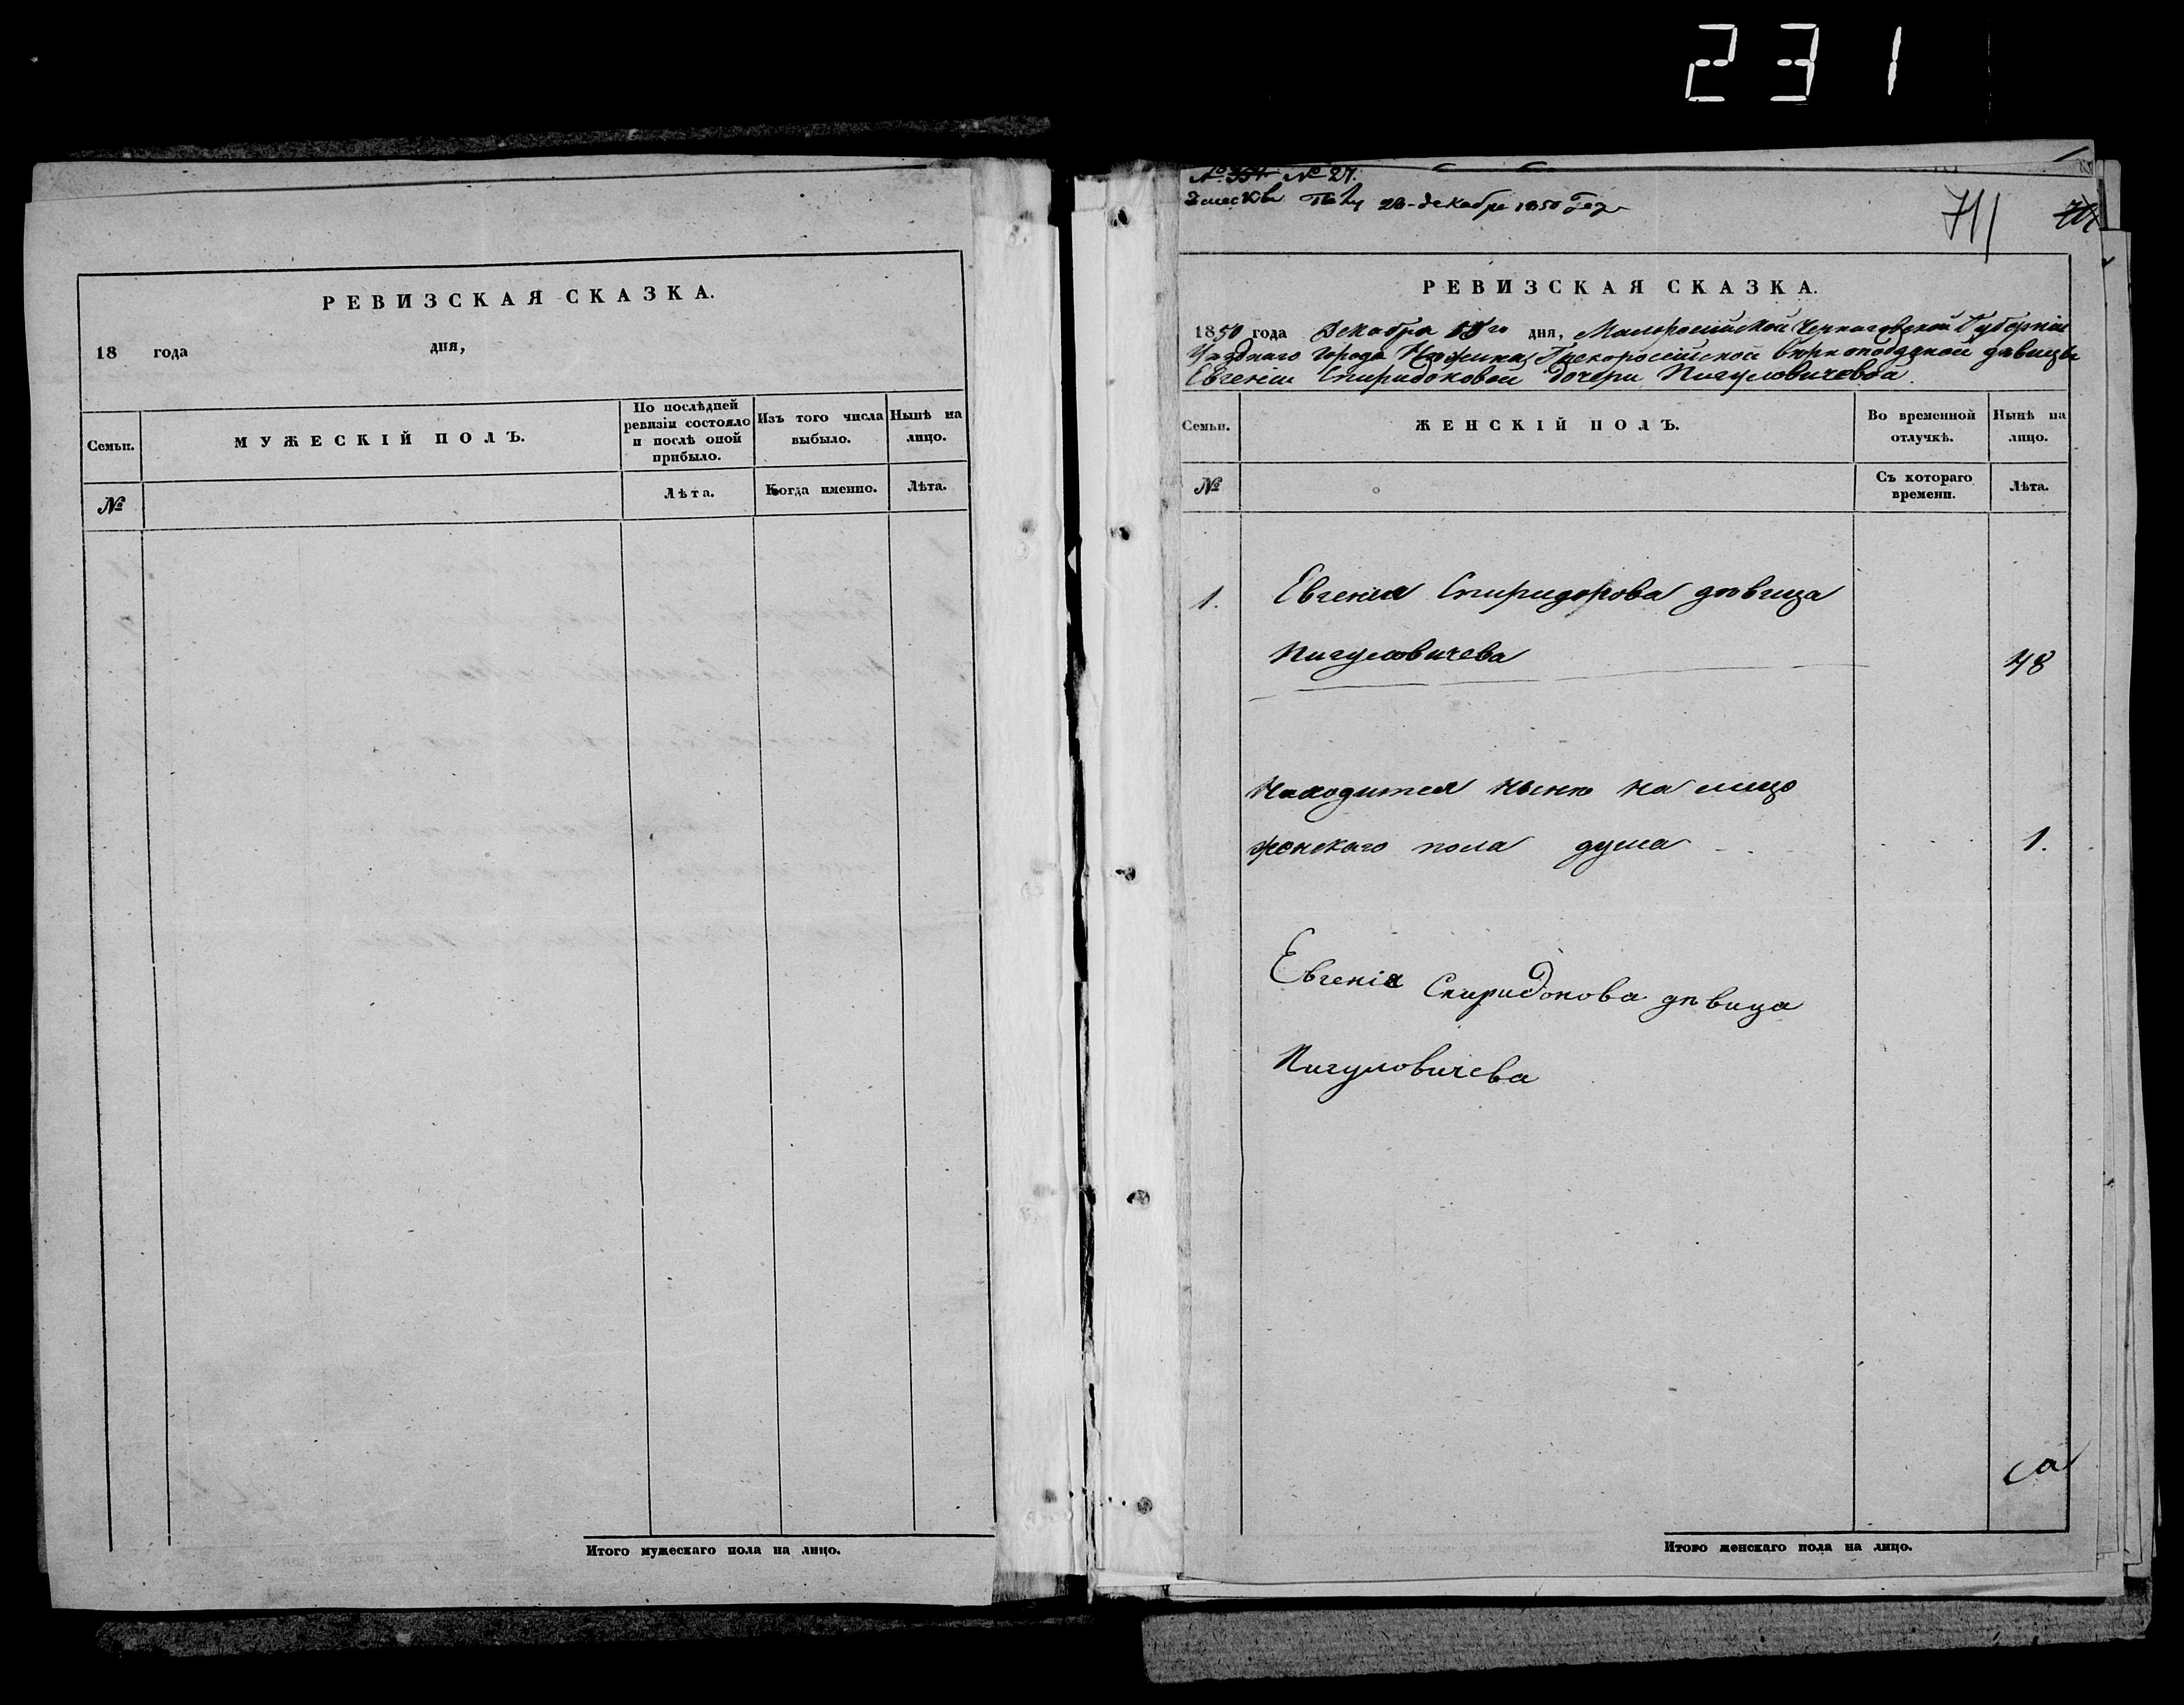 231
РЕВИЗСКАЯ СКАЗКА.
18 года дня,
Семьи.
МУЖЕСКІЙ ПОЛЪ.
По послѣдней ревизіи состояло и послѣ оной прибыло.
Изъ того числа выбыло.
Нынѣ на лицо.
№
Лѣта.
Когда именно.
Лѣта.
Итого мужескаго пола на лицо.
№ 354 № 27.
28 декабря 1850 года
711
РЕВИЗСКАЯ СКАЗКА.
1850 года Декабря го дня, Малоросійской Черниговской Губерніи
Уѣзднаго Города Нѣжина, Грекоросійской вѣрноподданой дѣвицы
Евгеніи Спиридоновой дочери Пигуловичевой
Семьи.
ЖЕНСКІЙ ПОЛЪ.
Во временной отлучкѣ.
Нынѣ на лицо.
№
Съ котораго времени.
Лѣта.
1. Евгенія Спиридонова дѣвица
Пигуловичева 48
Находится нынѣ на лицо
женскаго пола душа 1.
Евгенія Спиридонова дѣвица
Пигуловичева
са
Итого женскаго пола на лицо.